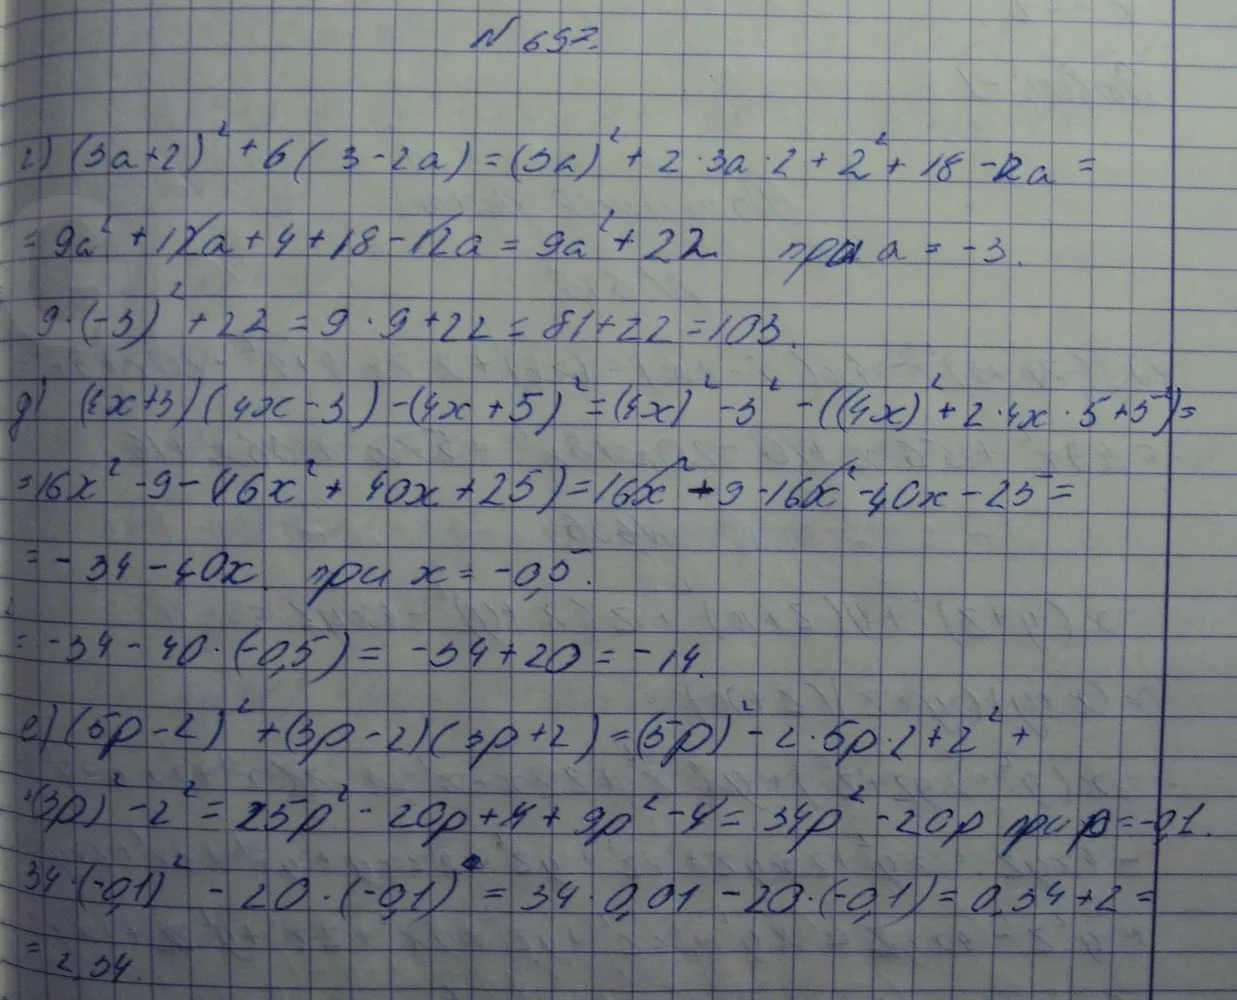 № 697.
г) (3a+2)² + 6(3-2a) = (3a)² + 2·3a·2 + 2² + 18 - 12a =
= 9a² + 12a + 4 + 18 - 12a = 9a² + 22 при a = -3.
9·(-3)² + 22 = 9·9 + 22 = 81 + 22 = 103.
д) (4x+3)(4x-3) - (4x+5)² = (4x)² - 3² - ((4x)² + 2·4x·5 + 5²) =
= 16x² - 9 - (16x² + 40x + 25) = 16x² - 9 - 16x² - 40x - 25 =
= -34 - 40x при x = -0,5.
= -34 - 40·(-0,5) = -34 + 20 = -14.
е) (5p-2)² + (3p-2)(3p+2) = (5p)² - 2·5p·2 + 2² +
+(3p)² - 2² = 25p² - 20p + 4 + 9p² - 4 = 34p² - 20p при p = -0,1.
34·(-0,1)² - 20·(-0,1) = 34·0,01 - 20·(-0,1) = 0,34 + 2 =
= 2,34.